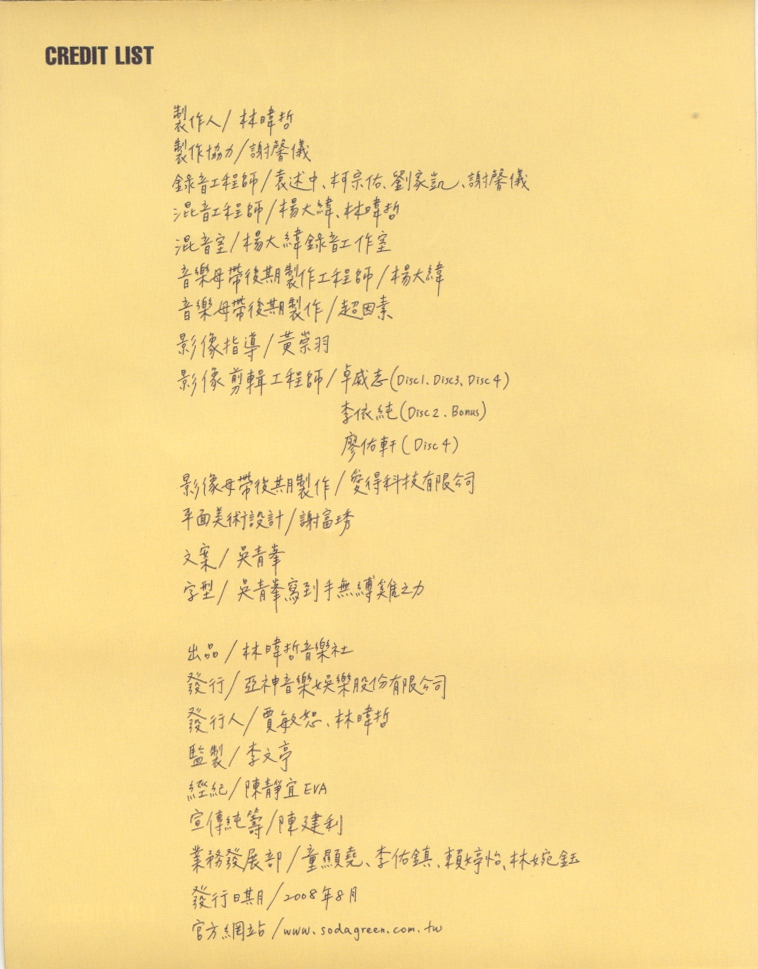 CREDIT LIST
製作人/林暐哲
製作協力/謝馨儀
錄音工程師/袁述中、柯宗佑、劉家凱、謝馨儀
混音工程師/楊大緯、林暐哲
混音室/楊大緯錄音工作室
音樂母帶後期製作工程師/楊大緯
音樂母帶後期製作/超因素
影像指導/黃崇羽
影像剪輯工程師/卓威志(Disc1、Disc3、Disc4)
李依純(Disc2、Bonus)
廖佑軒(Disc4)
影像母帶後期製作/愛得科技有限公司
平面美術設計/謝富琇
文案/吳青峯
字型/吳青峯寫到手無縛雞之力
出品/林暐哲音樂社
發行/亞神音樂娛樂股份有限公司
發行人/賈敏恕、林暐哲
監製/李文亭
經紀/陳靜宜 EVA
宣傳統籌/陳建利
業務發展部/童顯堯、李佑鎮、賴婷怡、林婉鈺
發行日期/2008年8月
官方網站/www.sodagreen.com.tw